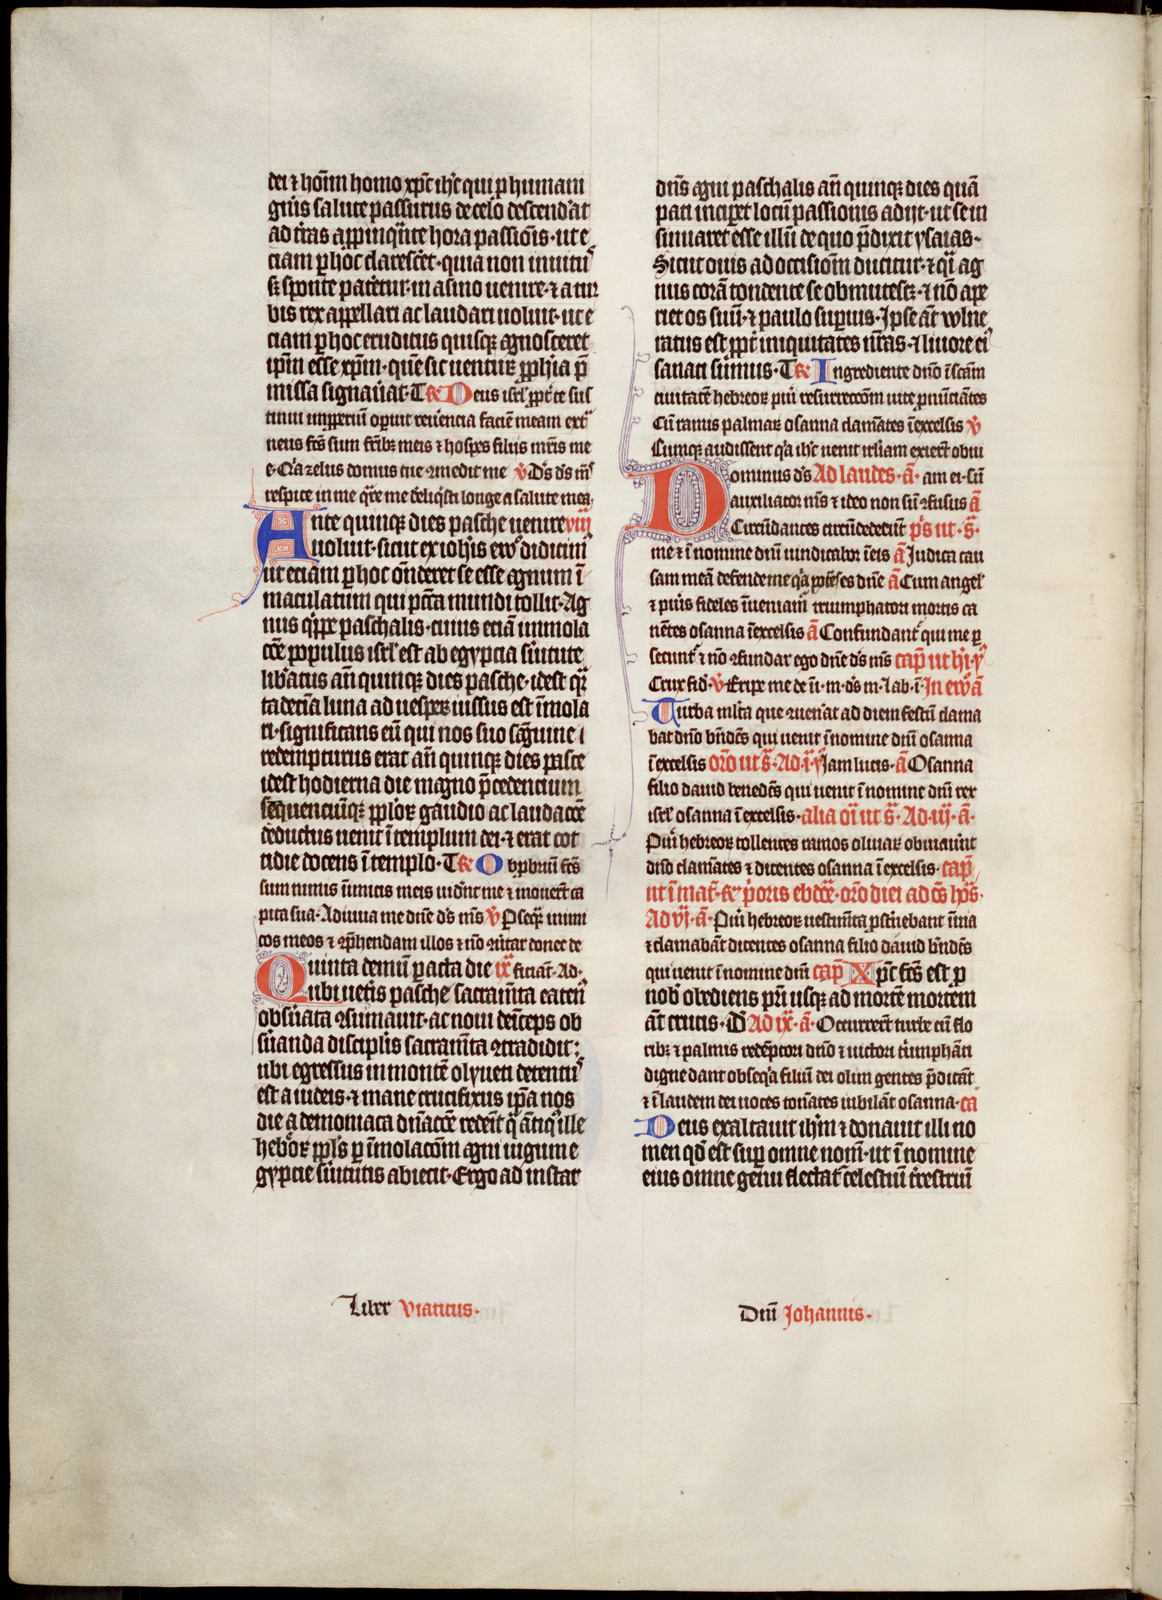 dei ⁊ hoīm homo xp̄c ih̄c qui ꝑ humani
gn̄is salute passurus de celo descend'at
ad t̄ras appīnq̄nte hora passiōis · ut e
ciam ꝑ hoc claresc̄et · quia non inuitu᷒
sꝫ sponte pat̄etur · in asino uenire · ⁊ a tur
bis rex appellari ac laudari uoluit · ut e
ciam ꝑ hoc eruditus quisqꝫ agnosceret
ip̄m esse xp̄m · quē sic uenturꝫ ꝓph̄ia p̄
missa signauāt · T R̄ Deus isrl̄ ꝓpt̄ te sus
tinui improꝑiū oꝑuit reūencia faciē meam ext̄
neus fc̄s sum frīb᷒ meis ⁊ hospes filiis mr̄is me
e · Qi̅a zelus domus tue ꝯmedit me V̄ Ds̄ ds̄ m᷒s
respice in me q̄re me deliq̄sti longe a salute mea
Ante quinqꝫ dies pasche uenire viij
uoluit · sicut ex ioh̄is ew̄o didicim᷒
ut eciam ꝑ hoc oñderet se esse agnum ī
maculatum qui pcc̄a mundi tollit · Ag
nus q̄ppe paschalis · cuius eciā immola
cōe populus isrl̄ est ab egypcia s̄uitute
lib̄atus añ quinqꝫ dies pasche · id est q̄r
ta decīa luna ad uesperꝫ iussus est īmola
ri · significans eū qui nos suo sāguine
redempturus erat añ quinqꝫ dies pasce
id est hodierna die magno p̄cedencium
sequenciūqꝫ pplōrꝫ gaudio ac laudacōe
deductus uenit ī templum dei · ⁊ erat cot
tidie docens ī templo · T R̄ Opprobriū fc̄s
sum nimis īimicis meis uid̄nt me ⁊ mouer̄t ca
pita sua · Adiuua me dn̄e ds̄ ms̄ V̄ Pseq̄r inimi
cos meos ⁊ ꝯp̄hendam illos ⁊ nō ꝯūtar donec de
Quinta demū ꝑacta die ix ficiāt · Ad ·
ubi uet̄is pasche sacram̄ta eaten᷒
obs̄uata ꝯsumauit · ac noui deīceps ob
s̄uanda disciplīs sacram̄ta ꝯtradidit ;
ubi egressus in montē olyueti detentu᷒
est a iudeis · ⁊ mane crucifixus ip̄a nos
die a demoniaca dn̄acōe redeīt q̄ ātiq᷒ ille
hebōrꝫ ppl̄s ꝑ īmolacōm agni iugum e
gypcie s̄uitutis abiecit · Ergo ad instar
dn̄s agni paschalis añ quinqꝫ dies quā
pati incipet locū passionis adijt · ut se in
sinuaret esse illū de quo p̄dixit ysaias ·
Sicut ouis ad occisiōm ducitur · ⁊ q̄i ag
nus corā tondente se obmutescꝫ · ⁊ nō ape
riet os suū · ⁊ paulo supius · Ipse āt wlne
ratus est ꝓpt̄ iniquitates nr̄as · ⁊ liuore ei᷒
sanati sumus · T R̄ Ingrediente dn̄o ī scām
ciuitatē hebreorꝫ pūi resurreccōm uite pronūciātes
Cū ramis palmarꝫ osanna clam̄ates ī excelsis V̄
Cumqꝫ audissent q̄a ih̄c uenit irl̄iam exier̄t obui
Dominus ds̄ Ad laudes · ā · am ei · Cū
auxiliator m̄s ⁊ ideo non sū ꝯfusus ā
Circūdantes circūdederūt p̄s ut · s̄ ·
me ⁊ ī nomine dn̄i uindicabor ī eis ā Judica cau
sam meā defende me q̄a potēs es dn̄e ā Cum angel᷒
⁊ pūis fideles īueniam᷒ triumphatori mortis cla
m̄tes osanna ī excelsis ā Confundant᷒ qui me ꝑ
secunt᷒ ⁊ nō ꝯfundar ego dn̄e ds̄ ms̄ cap̄ ut h̄i · y᷒
Crux fid · V̄ Eripe me de ī · m · ds̄ m · ⁊ ab · ī · In ew̄ ā
Turba ml̄ta que ꝯuen̄at ad diem festū clama
bat dn̄o bn̄dc̄s qui uenit ī nomine dn̄i osanna
ī excelsis or̄o ut s̄ · Ad · j · y᷒ Iam lucis · ā Osanna
filio dauid benedc̄s qui uenit ī nomine dn̄i rex
isrl̄ osanna ī excelsis · alia oīa ut s̄ · Ad · iij · ā ·
Pūi hebreorꝫ tollentes ramos oliuarꝫ obuiau̅t
dn̄o clam̄ates ⁊ dicentes osanna ī excelsis · cap̄
ut ī mat̄ · R̄ p̄oris ebd̄e · or̄o diei ad oēs hōs ·
Ad vj · ā · Pūi hebreorꝫ uestim̄ta ꝓst̄nebant ī uia
⁊ clamabāt dicentes osanna filio dauid bn̄dc̄s
qui uenit ī nomine dn̄i cap̄ Xp̄c fc̄s est ꝓ
nob᷒ obediens pr̄i usqꝫ ad mortē mortem
āt crucis · D̄ Ad ix · ā · Occurrer̄t turbe cū flo
ribꝫ ⁊ palmis redēptori dn̄o ⁊ uictori t̄umphāti
digne dant obseq̄a filiū dei olim gentes p̄dicāt
⁊ ī laudem dei uoces tonātes iubilāt osanna · ca
Deus exaltauit ih̄m ⁊ donauit illi no
men qd̄ est sup omne nom̄ · ut ī nomine
eius omne genu flectat᷒ celestiū t̄restriū
Liber viaticus ·
Dn̄i Johannis ·